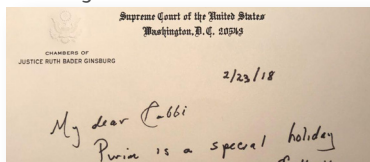 Supreme Court of the United States
Washington, D.C. 20543
CHAMBERS OF
JUSTICE RUTH BADER GINSBURG
2/23/18
My dear Rabbi
Purim is a special holiday